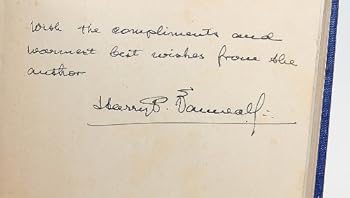 With the compliments and
warmest best wishes from the
author
Harry P.